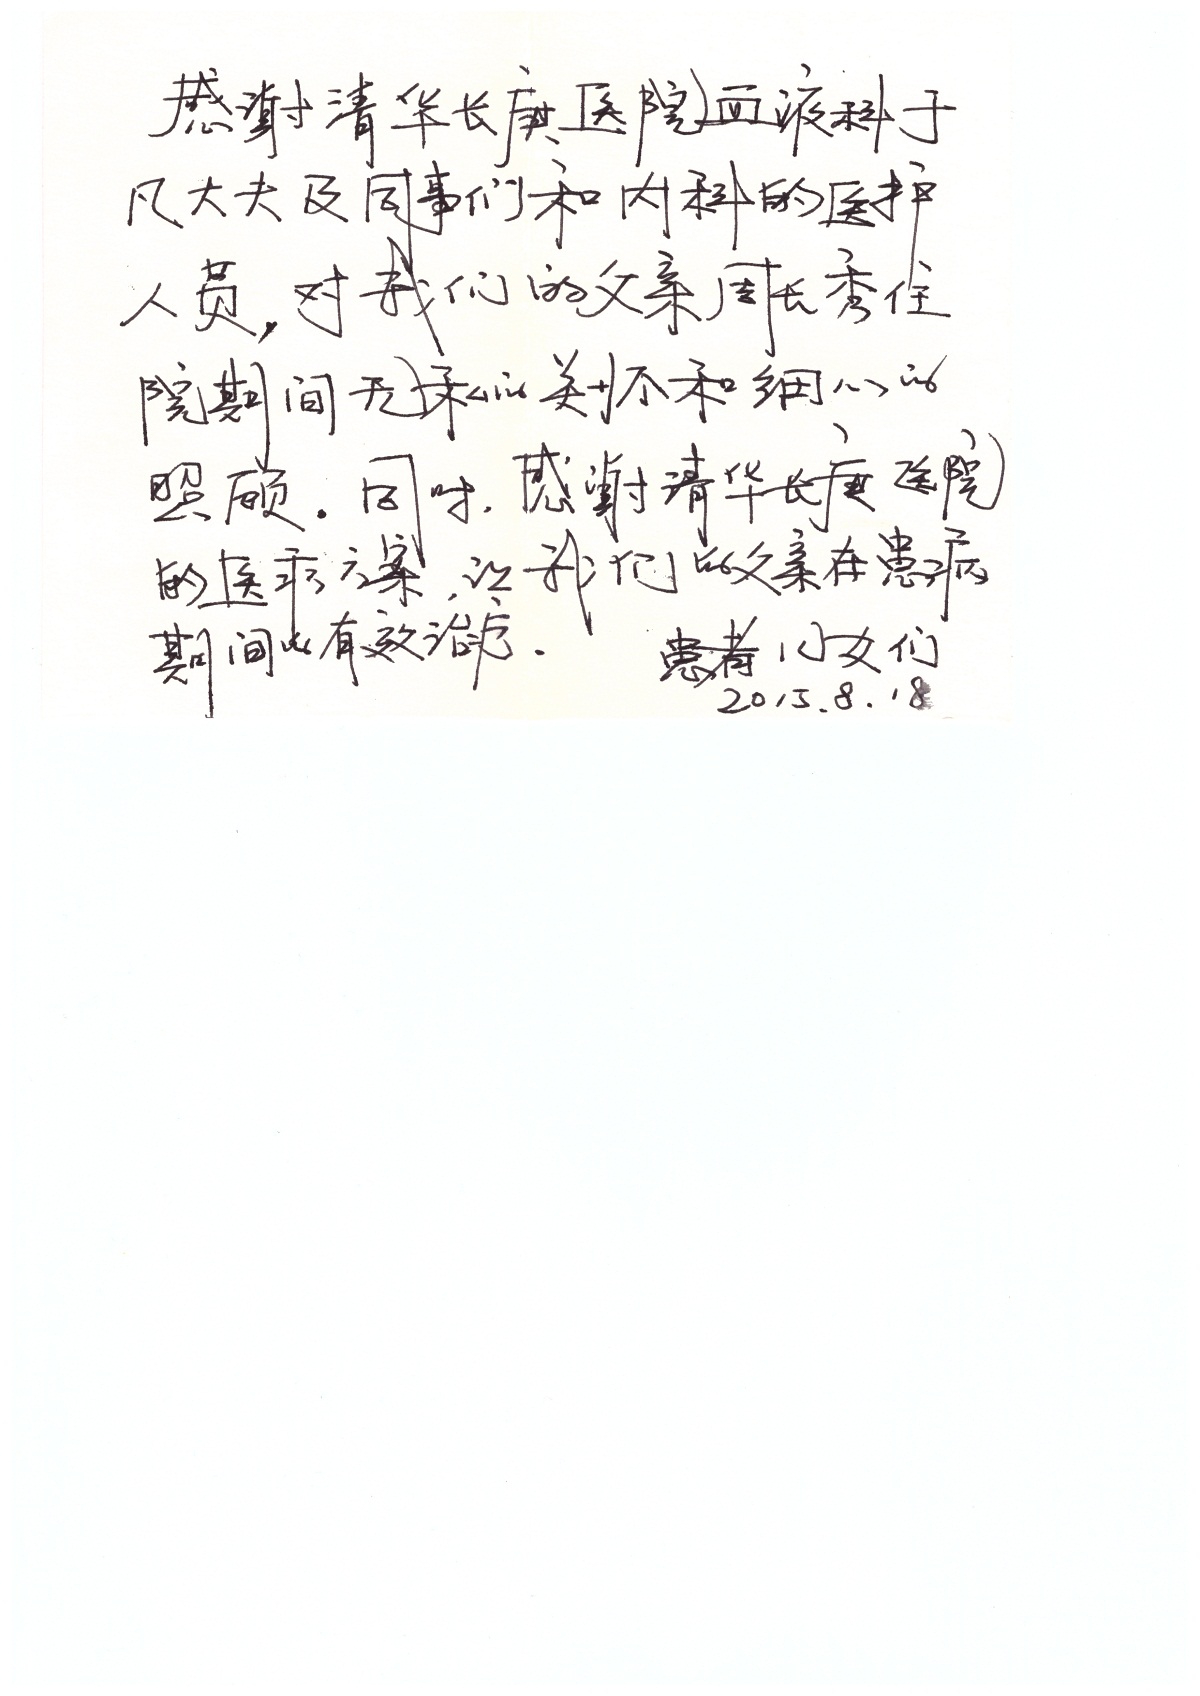 感谢清华长庚医院血液科于
凡大夫及同事们和内科的医护
人员，对我们的父亲周长秀住
院期间无私的关怀和细心的
照顾。同时，感谢清华长庚医院
的医疗方案，让我们的父亲在患病
期间的有效治疗。
患者儿女们
2015.8.18